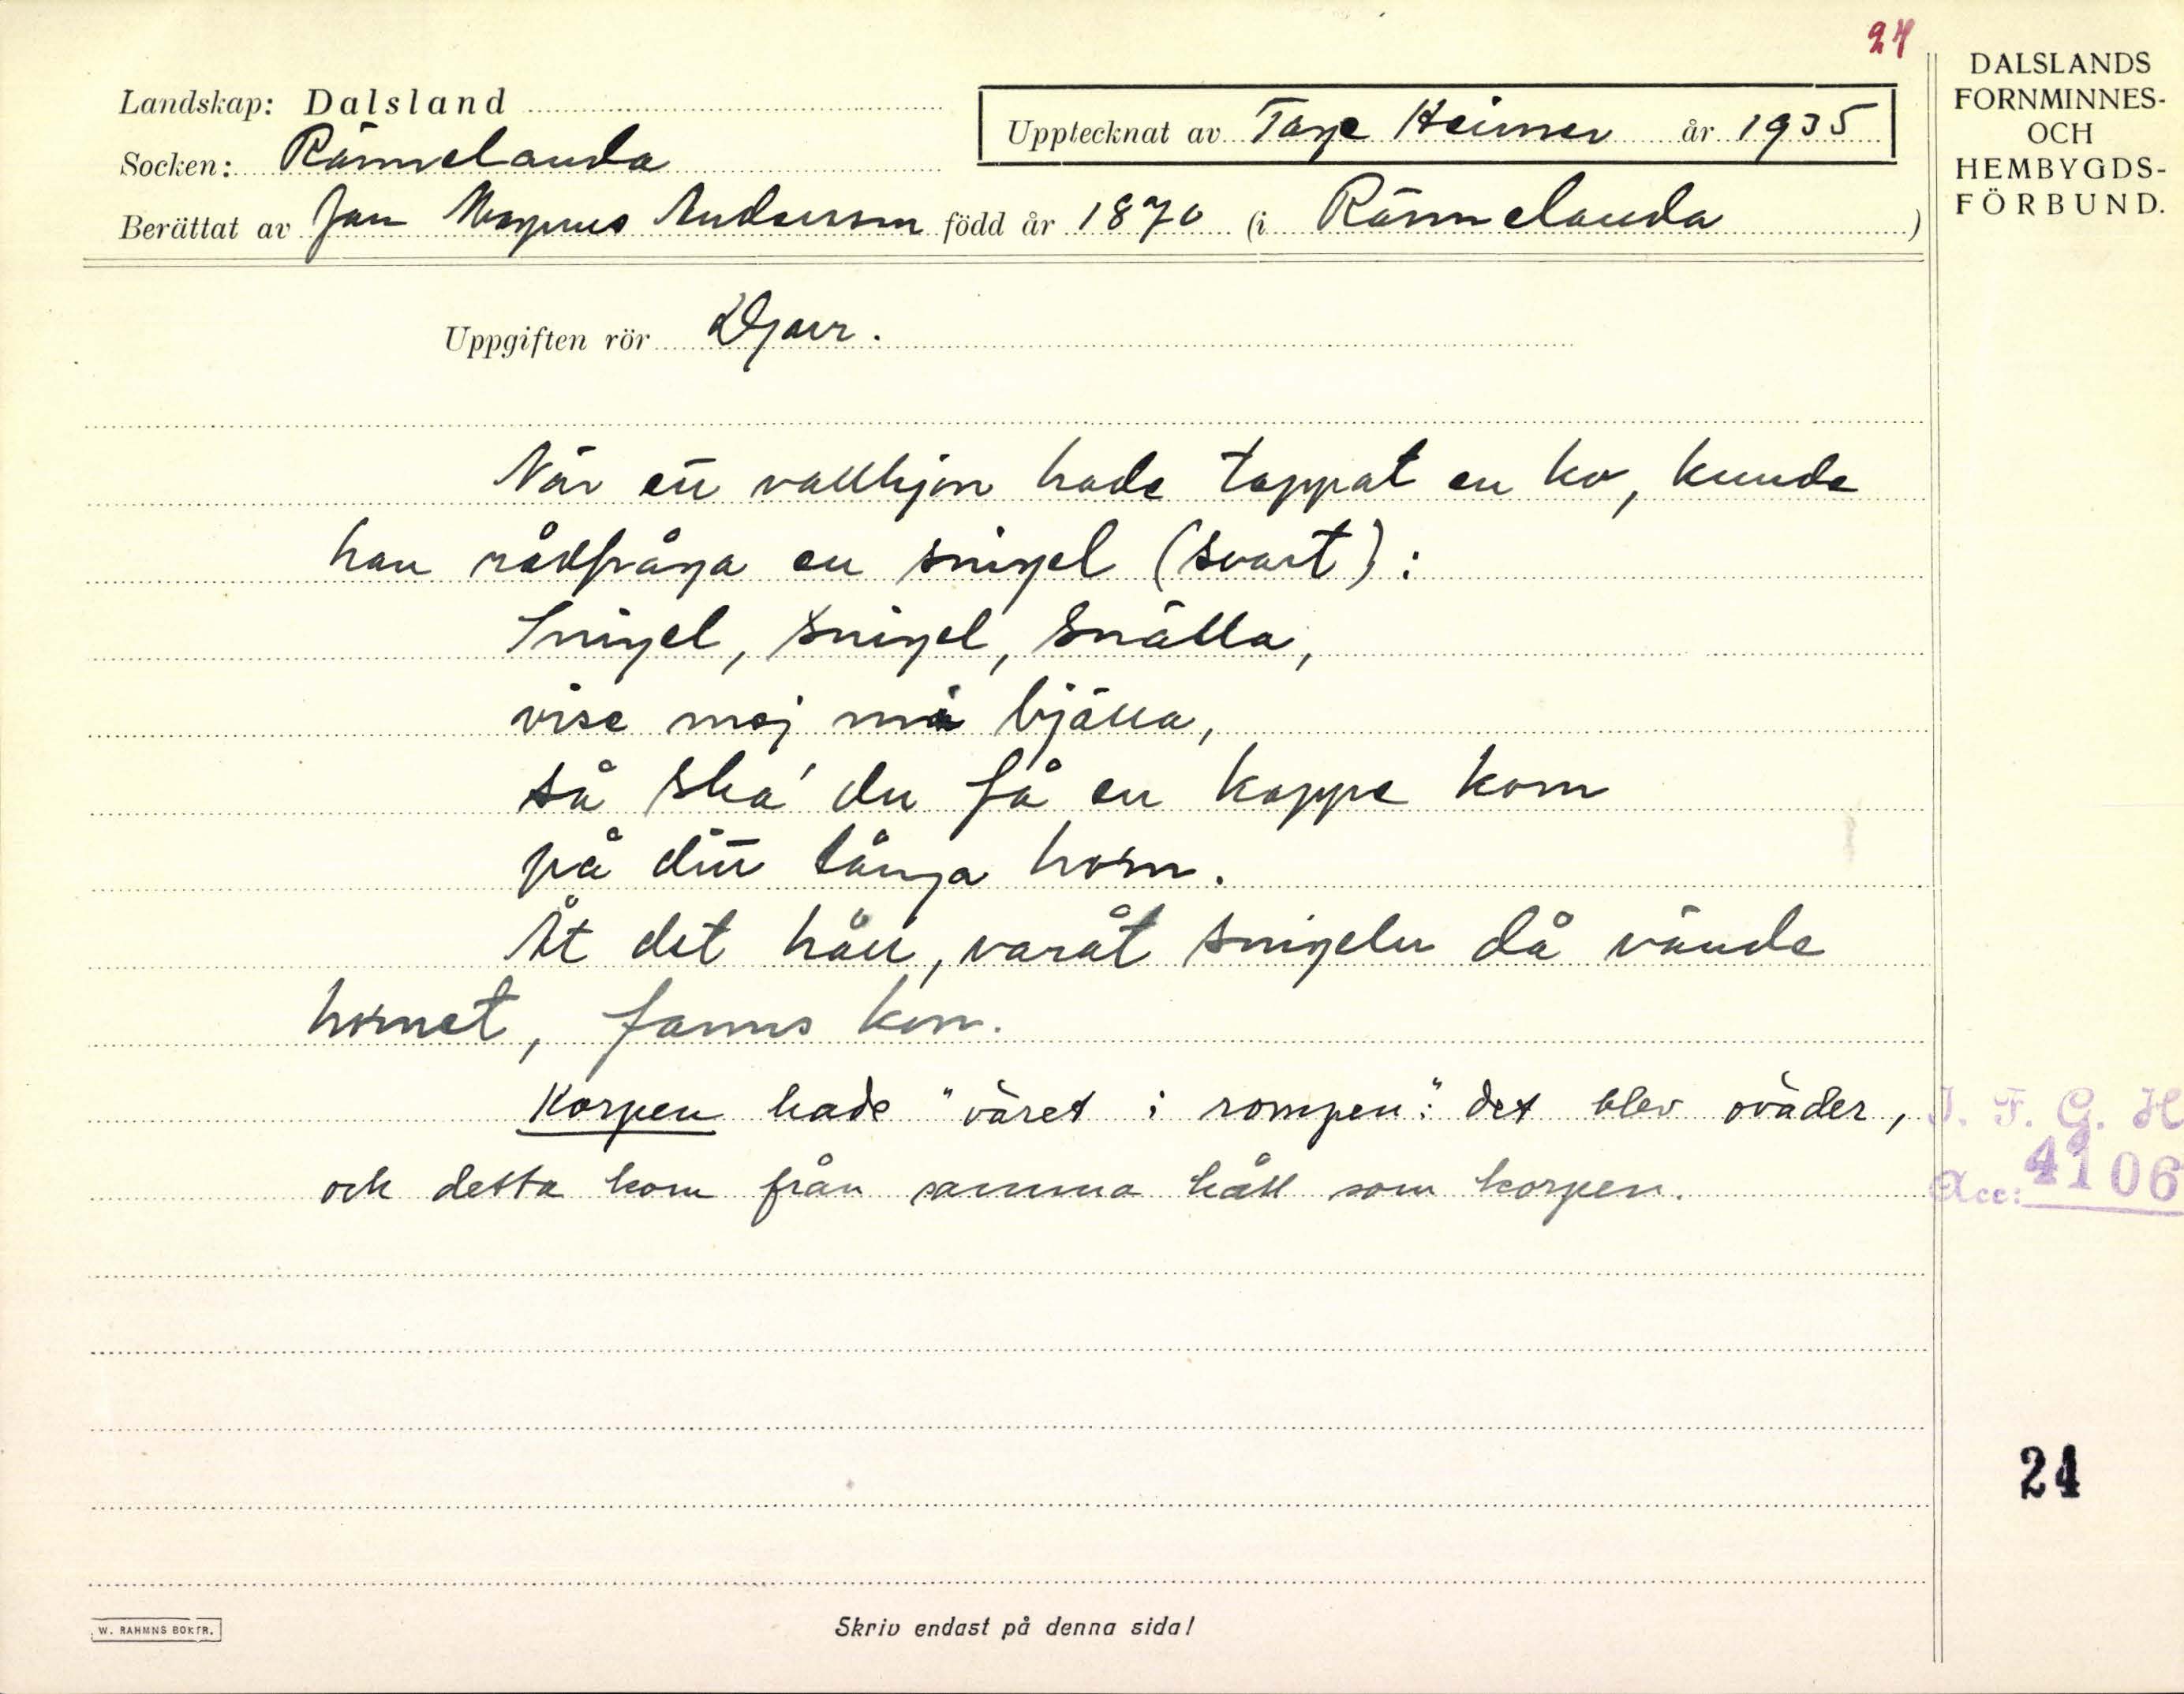 24
DALSLANDS
FORNMINNES-
OCH
HEMBYGDS-
FÖRBUND.
Landskap: Dalsland
Upptecknat av Tage Heimer år 1935
Socken: Rännelanda
Berättat av Jan Magnus Andersson född år 1870 (i Rännelanda )
Uppgiften rör Djur.
När ett vallhjon hade tappat en ko, kunde
han rådfråga en snigel (svart):
Snigel, snigel, snälla,
vise mej mi bjälla,
så ska' du få en kappe korn
på ditt långa horn.
Åt det håll, varåt snigeln då vände
hornet, fanns kon.
Korpen hade "väret i rompen": det blev oväder,
och detta kom från samma håll som korpen.
I. F. G. H
Acc: 4106
24
W. RAHMNS BOKTR.
Skriv endast på denna sida!